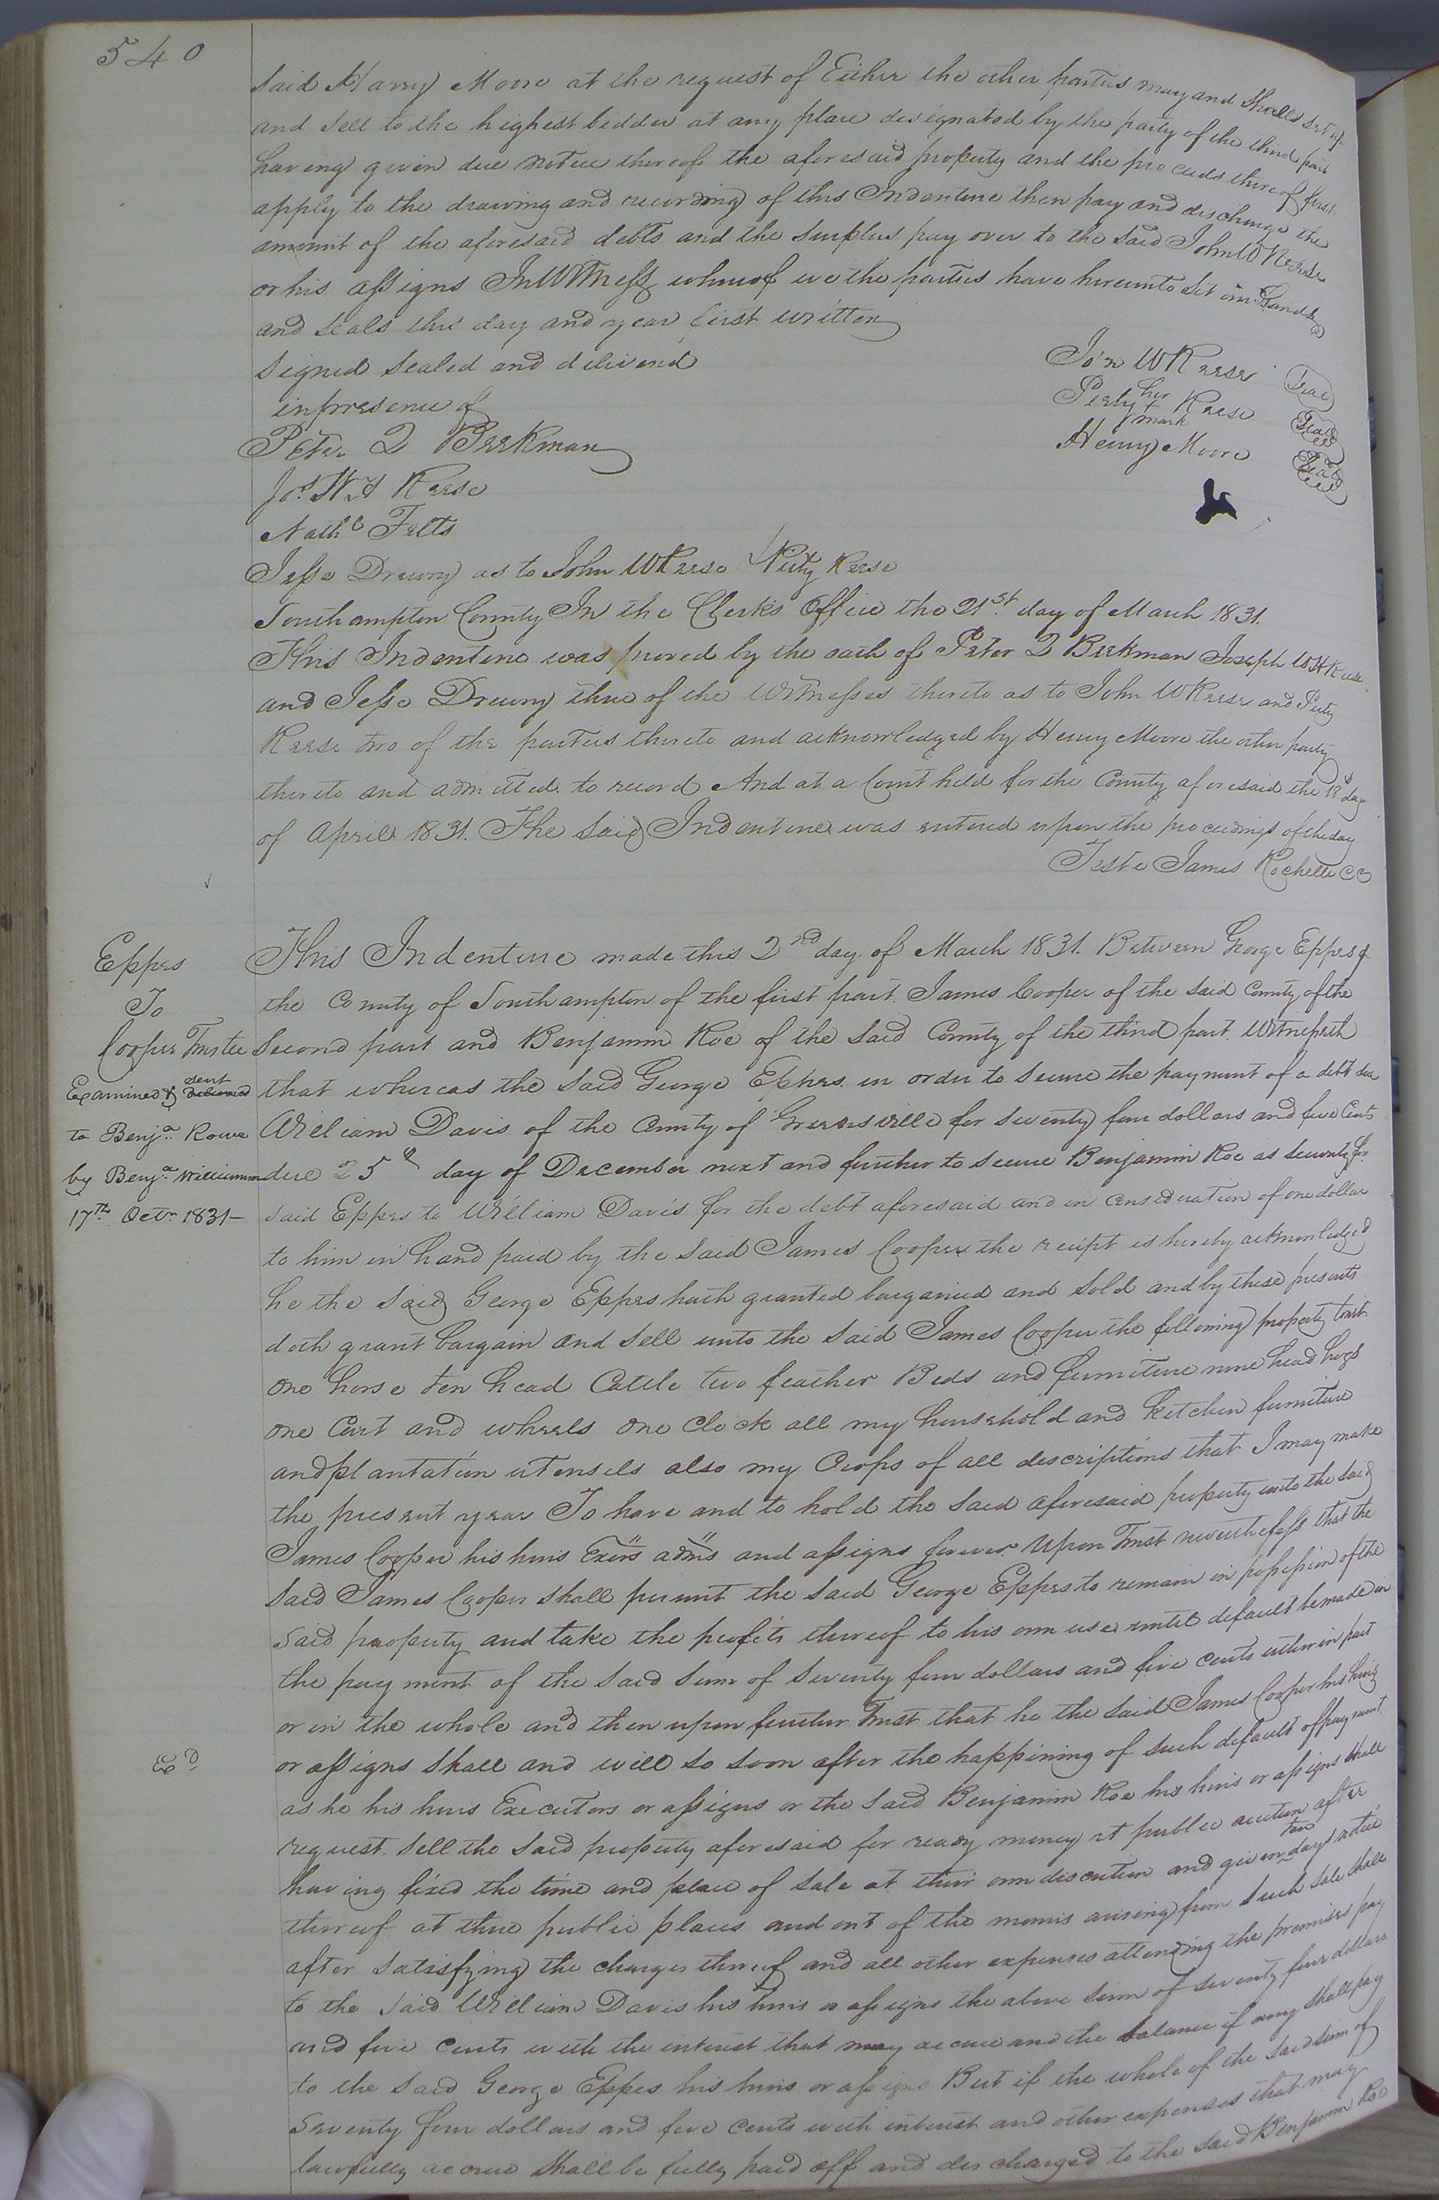 540
Said Harry Moore at the request of Either the other parties may and shall set up
and sell to the highest bidder at any place designated by the party of the third part
having given due notice thereof the aforesaid property and the proceeds thereof first
apply to the drawing and recording of this Indenture then pay and discharge the
amount of the aforesaid debts and the surplus pay over to the said John W Reese
or his assigns In Witness whereof we the parties have hereunto set our hands
and seals this day and year first written
Signed sealed and delivered
in presence of
Peter Q Beekman
Jos W H Reese
Nathl Felts
Jesse Drewry as to John W Reese & Piety Reese
Jo'n W Reese Seal
Piety her + mark Reese Seal
Henry Moore Seal
Southampton County In the Clerk's Office the 21st day of March 1831.
This Indenture was proved by the oath of Peter Q Beekman Joseph W H Reese
and Jesse Drewry three of the Witnesses thereto as to John W Reese and Piety
Reese two of the parties thereto and acknowledged by Henry Moore the other party
thereto and admitted to record And at a Court held for the County aforesaid the day
of April 1831. The Said Indenture was entered upon the proceedings of the day
Teste James Rochelle CC
Eppes
To
Cooper Trustee
Examined & sent delivered
to Benja Rowe
by Benja Williamson
17th Octr 1831-
This Indenture made this 2nd day of March 1831. Between George Eppes of
the County of Southampton of the first part, James Cooper of the said County of the
Second part and Benjamin Roe of the said County of the third part. Witnesseth
that whereas the said George Eppes in order to secure the payment of a debt due
William Davis of the County of Greensville for seventy four dollars and five Cents
due 25th day of December next and further to secure Benjamin Roe as security for
said Eppes to William Davis for the debt aforesaid and in consideration of one dollar
to him in hand paid by the said James Cooper the receipt is hereby acknowledged
he the said George Eppes hath granted bargained and sold and by these presents
doth grant bargain and sell unto the said James Cooper the following property towit
One horse ten head Cattle two feather Beds and furniture nine head hogs
one Cart and wheels one Clock all my household and kitchen furniture
and plantation utensils also my Crops of all descriptions that I may make
the present year To have and to hold the said aforesaid property unto the said
James Cooper his heirs Exors adms and assigns forever. Upon Trust nevertheless that the
said James Cooper shall permit the said George Eppes to remain in possession of the
said property and take the profits thereof to his own use until default be made in
the payment of the said sum of seventy four dollars and five cents either in part
or in the whole and then upon further Trust that he the said James Cooper his heirs
or assigns shall and will so soon after the happining of such default of payment
as he his heirs Executors or assigns or the said Benjamin Roe his heirs or assigns shall
request. Sell the said property aforesaid for ready money at public auction after
having fixed the time and place of sale at their own discretion and given ten days notice
thereof at three public places and out of the monies arising from such sale shall
after satisfying the charges thereof and all other expenses attending the premises pay
to the said William Davis his heirs or assigns the above sum of seventy four dollars
and five cents with the interest that may accrue and the balance if any shall pay
to the said George Eppes his heirs or assigns But if the whole of the said sum of
seventy four dollars and five cents with interest and other expenses that may
lawfully accrue shall be fully paid off and discharged to the said Benjamin Roe
Ed